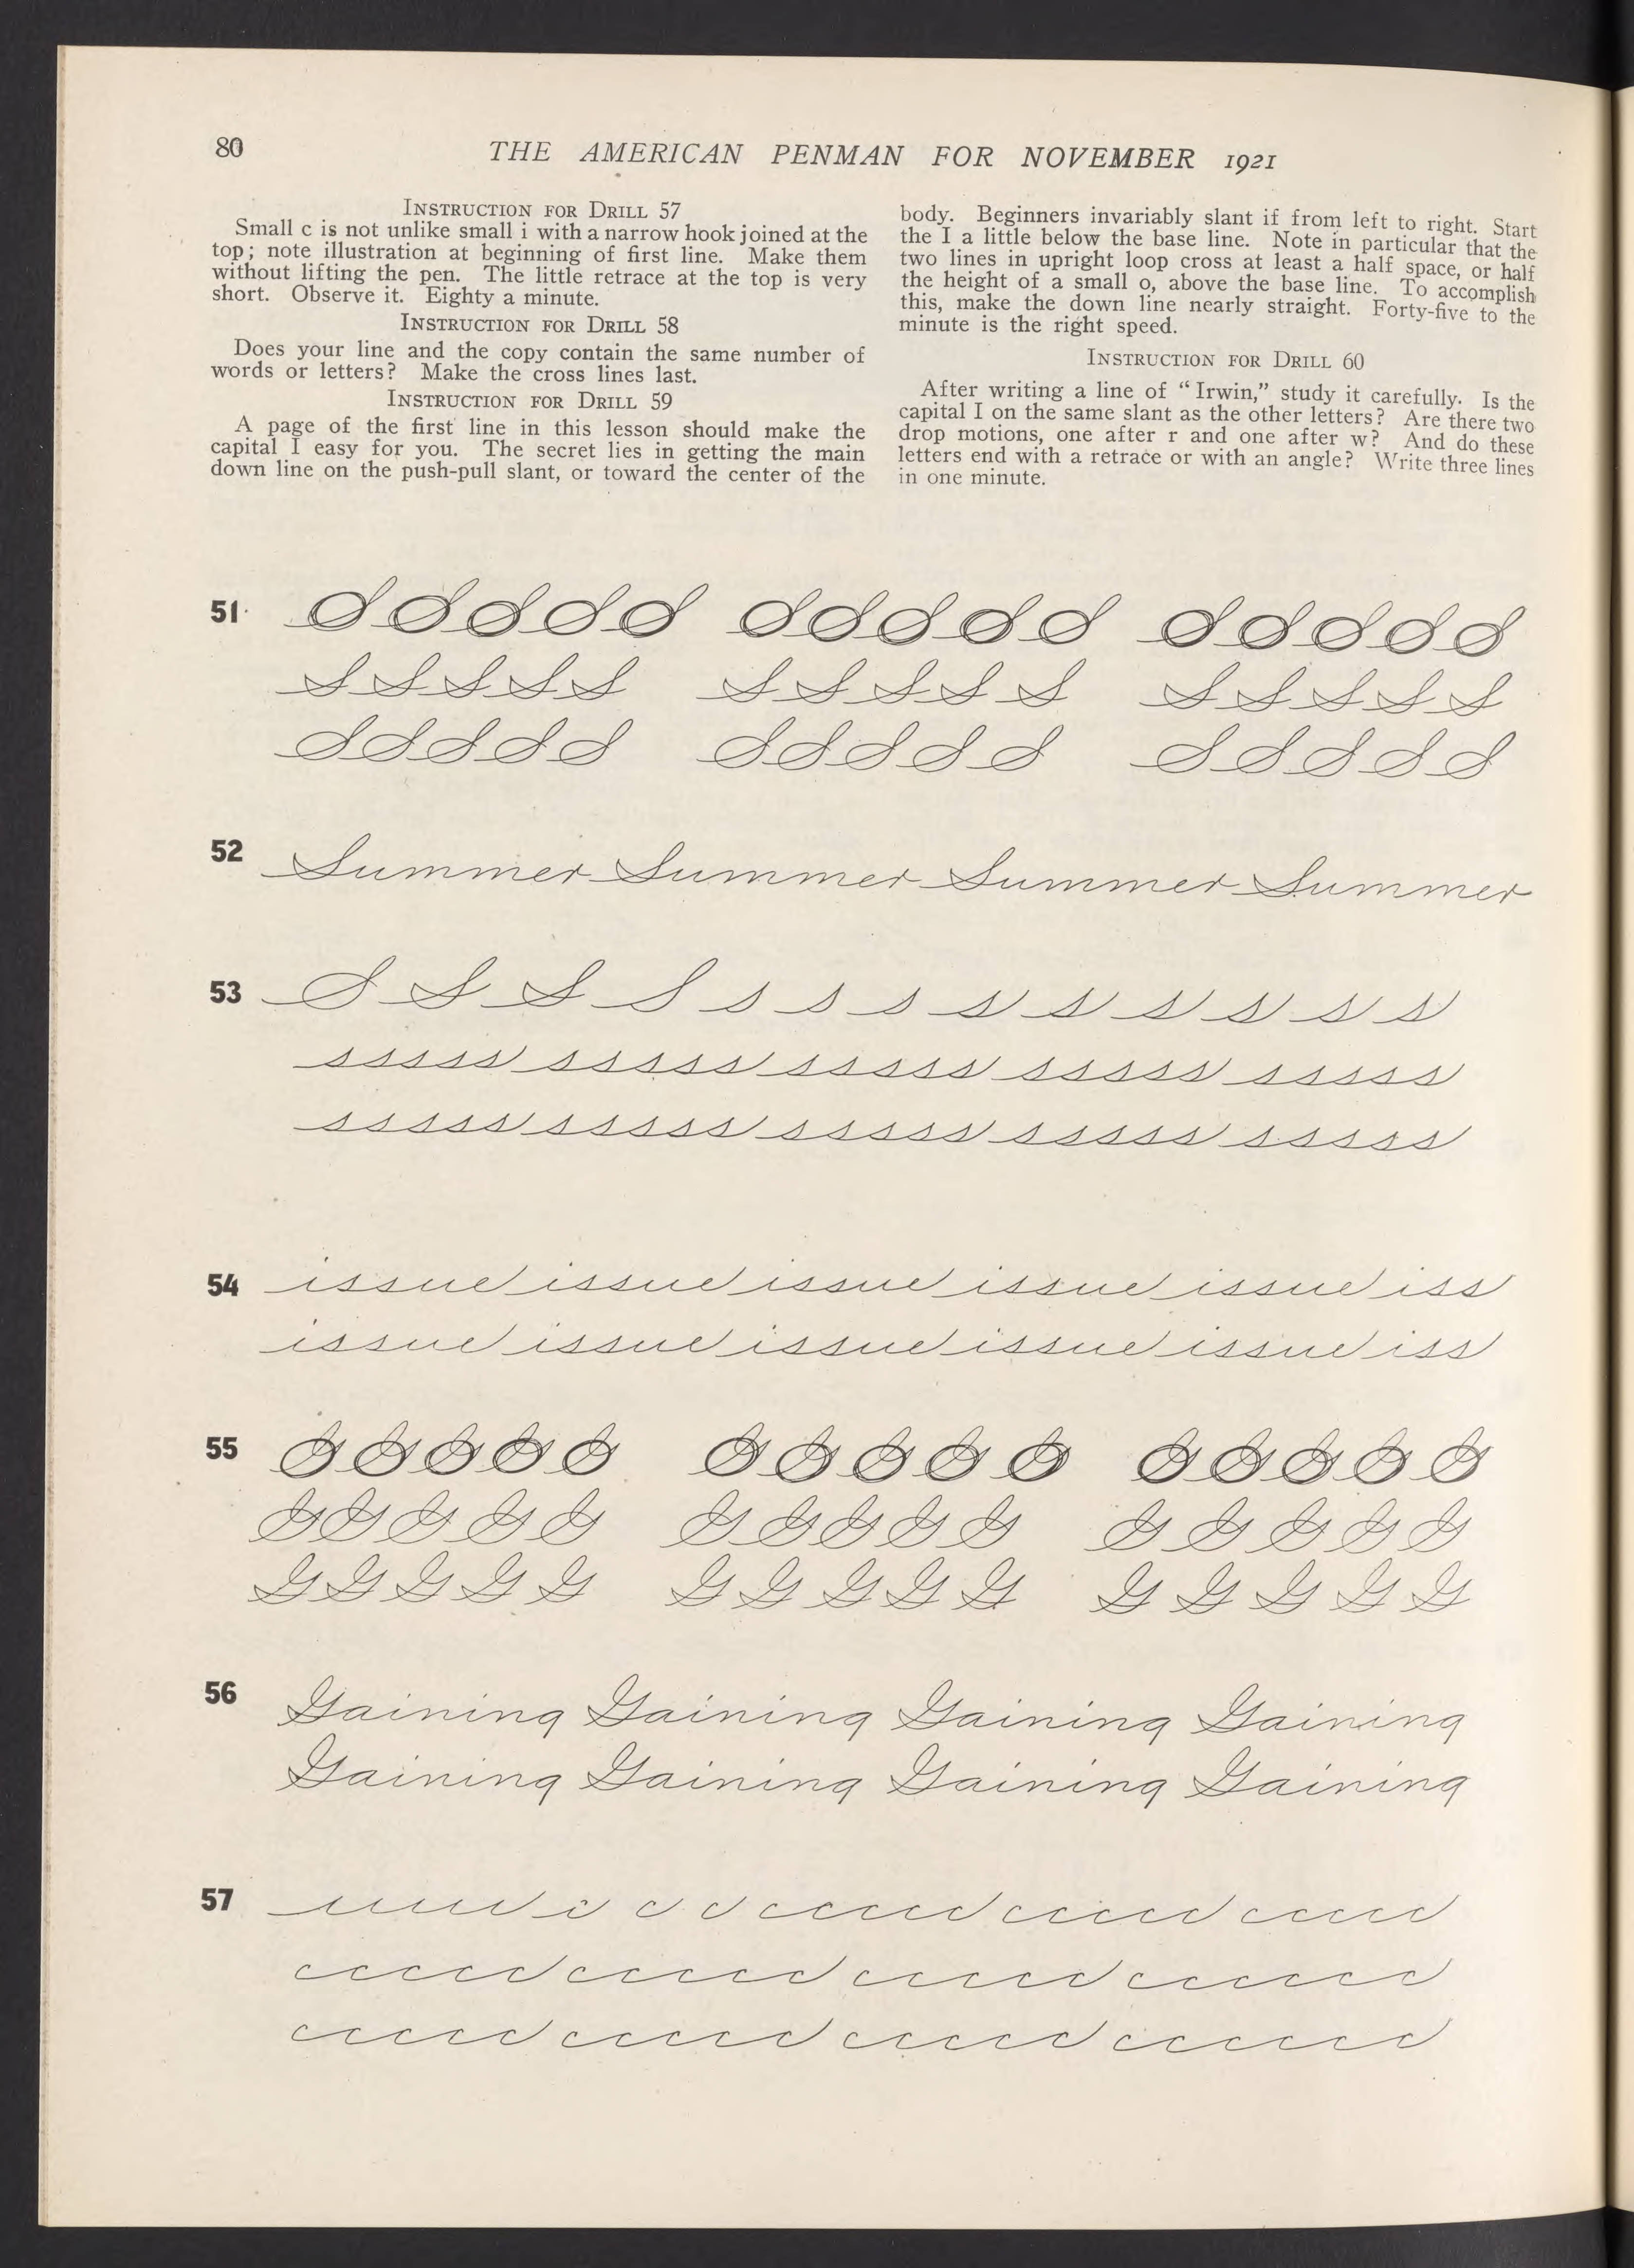 80
THE AMERICAN PENMAN FOR NOVEMBER 1921
INSTRUCTION FOR DRILL 57
Small c is not unlike small i with a narrow hook joined at the
top; note illustration at beginning of first line. Make them
without lifting the pen. The little retrace at the top is very
short. Observe it. Eighty a minute.
INSTRUCTION FOR DRILL 58
Does your line and the copy contain the same number of
words or letters? Make the cross lines last.
INSTRUCTION FOR DRILL 59
A page of the first line in this lesson should make the
capital I easy for you. The secret lies in getting the main
down line on the push-pull slant, or toward the center of the
body. Beginners invariably slant if from left to right. Start
the I a little below the base line. Note in particular that the
two lines in upright loop cross at least a half space, or half
the height of a small o, above the base line. To accomplish
this, make the down line nearly straight. Forty-five to the
minute is the right speed.
INSTRUCTION FOR DRILL 60
After writing a line of “Irwin,” study it carefully. Is the
capital I on the same slant as the other letters? Are there two
drop motions, one after r and one after w? And do these
letters end with a retrace or with an angle? Write three lines
in one minute.
51 SSSSS SSSSS SSSSS
SSSSS SSSSS SSSSS
SSSSS SSSSS SSSSS
52 Summer Summer Summer Summer
53 S S S S s s s s s s s s s
sssss sssss sssss sssss sssss
sssss sssss sssss sssss sssss
54 issue issue issue issue issue iss
issue issue issue issue issue iss
55 GGGGG GGGGG GGGGG
GGGGG GGGGG GGGGG
GGGGG GGGGG GGGGG
56 Gaining Gaining Gaining Gaining
Gaining Gaining Gaining Gaining
57 ııııı c c c ccccc ccccc ccccc
ccccc ccccc ccccc cccccc
ccccc ccccc ccccc cccccc